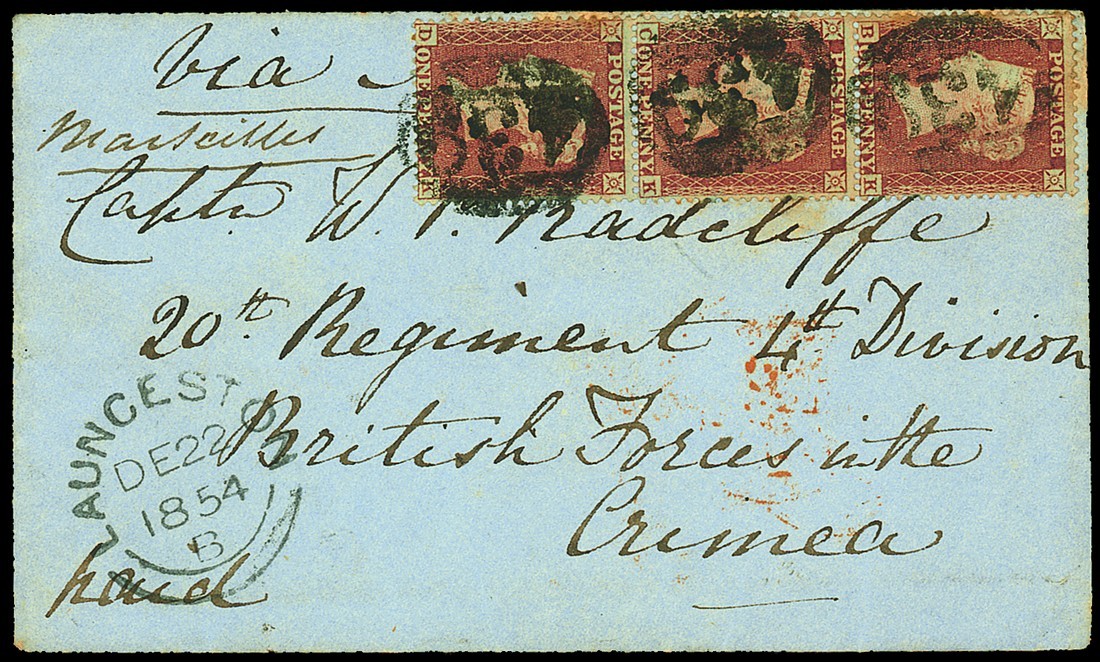 via
Marseilles
D ONE PENNY K
POSTAGE
C ONE PENNY K
POSTAGE
B ONE PENNY K
POSTAGE
Captn W. P. Radcliffe
20th Regiment 4th Division
British Forces in the
Crimea
paid
LAUNCESTON
DE22
1854
B